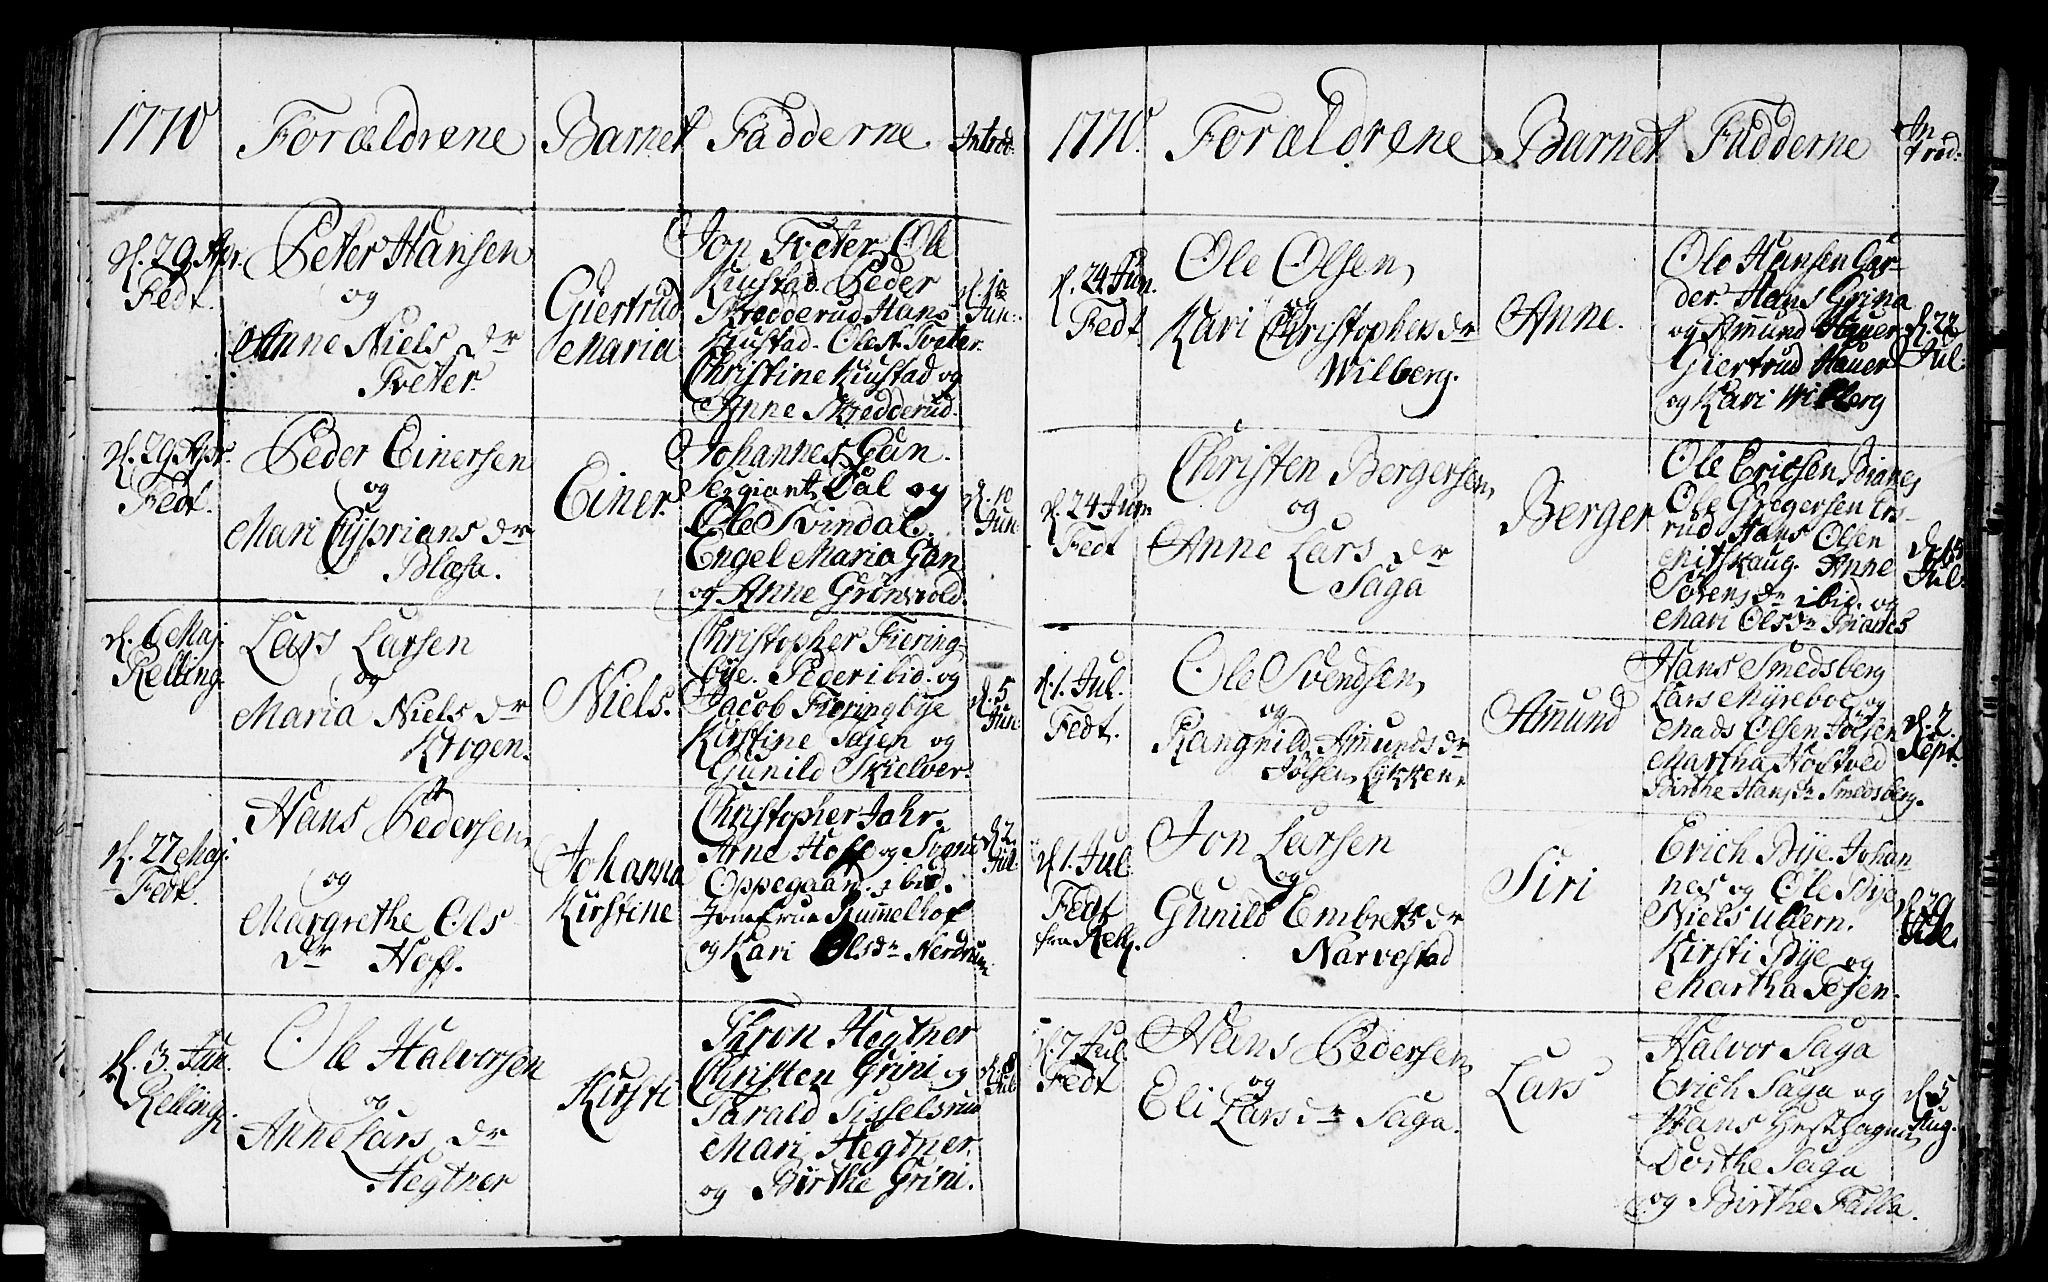 1770 Forældrene Barnet Fadderne Introd:
d. 29 Apr.
Fedt.
Peter Hansen
og
Anne Niels dr
Tveter.
Giertrud
Maria
Jon Tveter, Ole
Kiustad. Peder
Skredderud, Hans
Kiustad. Ole Tveter.
Christine Kiustad og
Anne Skredderud.
d. 10
Jun:
d. 29 Apr.
Fedt.
Peder Einersen
og
Mari Cyprians dr
Blæsa.
Einer.
Johannes Gan.
Sergiant Dal og
Ole Svindal.
Engel Maria Gan
og Anne Grønvold.
d. 10
Jun
d. 6 Maj.
Relling.
Lars Larsen
og
Maria Niels dr
Krogen.
Niels.
Christopher Fiering-
bye. Peder ibid. og
Jacob Fieringbye
Kirstine Tajen og
Gunild Skielver.
d. 5
Jun
d. 27 Maj.
Fedt.
Hans Pedersen,
og
Margrethe Ols
dr Hoff.
Johanna
Kirstine
Christopher Jahr.
Arne Hoff og Svend
Oppegaard ibid.
Jomfrue Rummelhof
og Kari Olsdr Nerdrum
d. 2
Jul
d. 3. Jun.
Relling.
Ole Halvorsen
og
Anne Lars dr
Hegtner
Kirsti
Thron Hegtner
Christen Grini og
Tarald Sisselsrud
Mari Hegtner.
og Birthe Grini.
d. 8
Jul
1770. Forældrene Barnet Fadderne In
trod:
d. 24 Jun.
Fedt
Ole Olsen,
og
Kari Christophers dr
Wilberg.
Anne.
Ole Hansen Gar-
der. Hans Grina
og Amund Hauer
Giertrud Hauer
og Kari Wilberg
d. 22
Jul.
d. 24 Jun.
Fedt
Christen Bergersen,
og
Anne Lars dr
Saga
Berger
Ole Ericsen Branes
Ole Gregersen Ers-
rud, Hans Olsen
Mitskaug. Anne
Sørens dr ibid. og
Mari Olsdr Branes
d. 15
Jul.
d. 1. Jul.
Fedt.
Ole Svendsen,
og
Rangnild Amunds dr
Jølsen, Lykken.
Amund
Hans Smedsberg
Lars Myreboe, og
Mads Olsen Jølsen
Martha Høstved
Birthe Hans dr Smedsberg.
d. 2.
Sept.
d. 1. Jul.
Fedt
fra Rell.
Jon Larsen
og
Gunild Embrets dr
Narvestad
Siri
Erich Bye. Johan-
nes og Ole Bye
Niels Ullern.
Kirsti Bye og
Martha Tøien.
d. 29
Jul.
d. 7 Jul.
Fedt
Hans Pedersen,
og
Eli Lars dr Saga.
Lars
Halvor Saga
Erich Saga og
Hans
Dorthe Saga
og Birthe Falla.
d. 5
Aug.